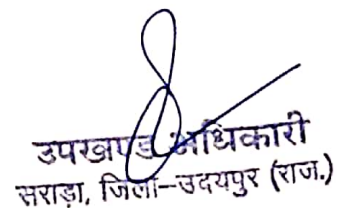 उपखण्ड अधिकारी
सराड़ा, जिला-उदयपुर (राज.)